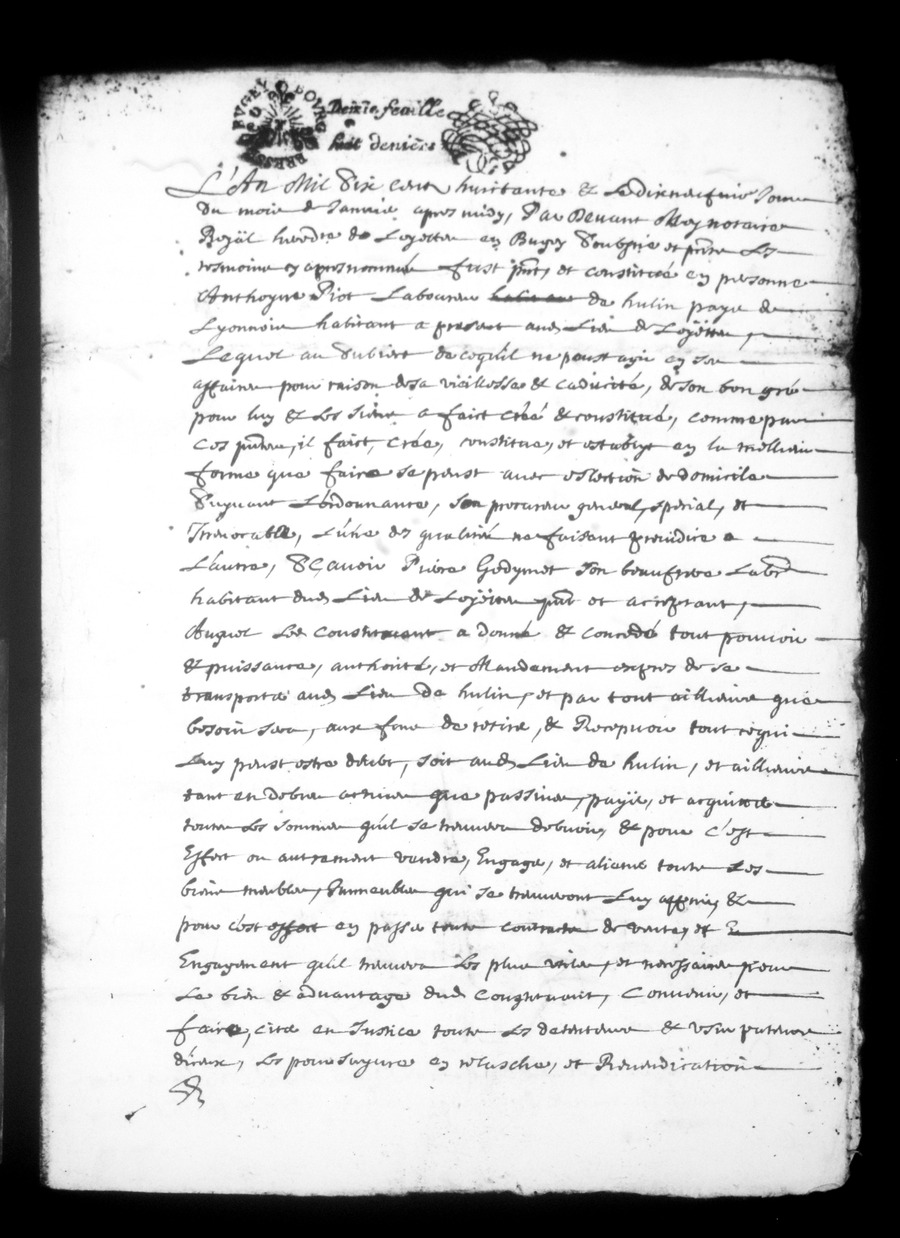 BUGEY BOURG BRESSE
Demie feuille
huit deniers
L'An Mil Six cent huictante & le dixneufuie Jour
du mois de Januier apres midy, Par Deuant Moy notaire
Royal heredre de Loyettes en Bugey Soubsigné et pnt Les
tesmoins cy apres nommés fust pnt, et constitué en personne
Anthoyne Piot Laboureur de hulin pays de
Lyonnois habitant a present aud Lieu de Loyettes,
Lequel au Subiect de ce qu'il ne peust agir en ses
affaires pour raison de sa vieillesse & caducité, de son bon gré
pour luy & les siens a faict créé & constitué, comme par
ces pntes, il faict, crée, constitue, et establyt en la meilleure
forme que faire se peust auec eslection de domicile
Suyuant L'ordonnance, son procureur general, special, et
Irreuocable, L'une des qualités ne faisant preiudice a
L'autre, Sçauoir Piere Godymet son beaufrere Labr
habitant dud Lieu de Loyettes pnt et acceptant,
Auquel Led constituant a donné & concedé tout pouuoir
& puissance, authorité, et Mandement expres de se
transporter aud Lieu de hulin, et par tout ailleurs que
besoin sera, aux fins de retirer, & Recepuoir tout ce qui
Luy peust estre deubt, soit aud Lieu de hulin, et ailleurs
tant en debtes actiues que passiues, payer, et acquitter
toutes les sommes qu'il se treuuera debuoir, & pour c'est
Effect ou autrement vendre, Engager, et aliener toute Les
biens meubles, Immeubles qui se treuueront Luy appartenir, &
pour c'est effect en passer toute contracts de vente, et
Engagement qu'il treuuera les plus vtiles, et necessaires pour
Le bien & aduantage dud Constituant, Conuenir, et
faire, citer en Justice toute les detenteurs & vsurpateurs
d'iceux, les poursuyure en relasche, et Reuendication